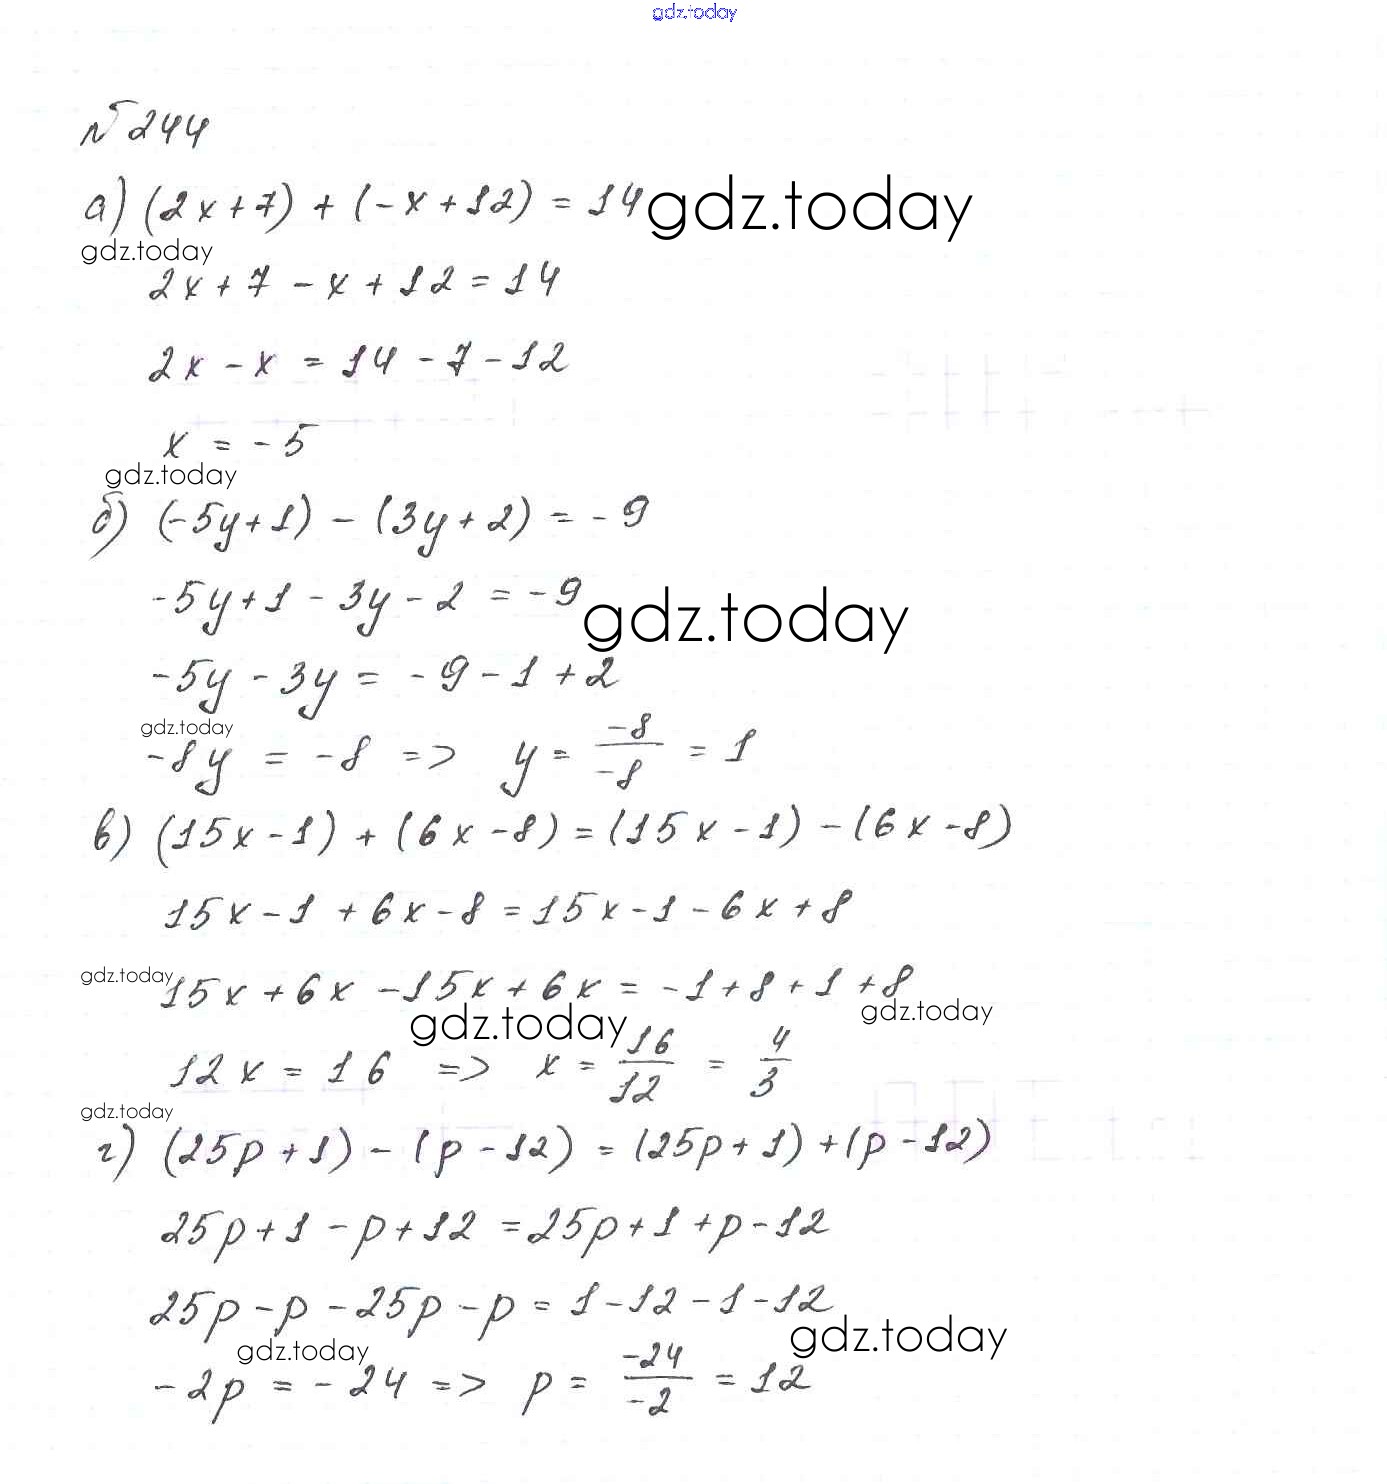 gdz.today
№244
а) (2x+7) + (-x+12) = 14 gdz.today
gdz.today
2x+7 - x + 12 = 14
2x - x = 14 - 7 - 12
x = -5
gdz.today
б) (-5y+1) - (3y+2) = -9
-5y+1 - 3y - 2 = -9 gdz.today
-5y - 3y = -9 - 1 + 2
gdz.today
-8y = -8 => y = -8/-8 = 1
в) (15x-1) + (6x-8) = (15x-1) - (6x-8)
15x-1 + 6x-8 = 15x-1-6x+8
gdz.today 15x + 6x - 15x + 6x = -1+8+1+8
gdz.today gdz.today
12x = 16 => x = 16/12 = 4/3
gdz.today
г) (25p+1) - (p-12) = (25p+1) + (p-12)
25p+1-p+12 = 25p+1+p-12
25p-p-25p-p = 1-12-1-12
gdz.today gdz.today
-2p = -24 => p = -24/-2 = 12